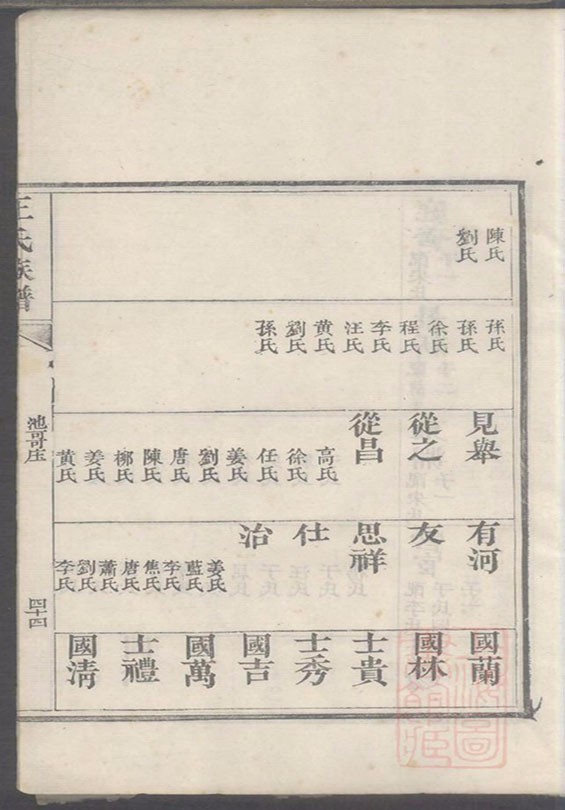 陳氏
劉氏
孫氏
孫氏
徐氏
程氏
李氏
汪氏
黄氏
劉氏
孫氏
見舉
從之
從昌
高氏
徐氏
任氏
姜氏
劉氏
唐氏
陳氏
柳氏
姜氏
黄氏
有河
友
思祥
仕
治
姜氏
藍氏
李氏
焦氏
唐氏
蕭氏
劉氏
李氏
國蘭
國林
士貴
士秀
國吉
國萬
士禮
國清
王氏族譜
池哥庄
四十四